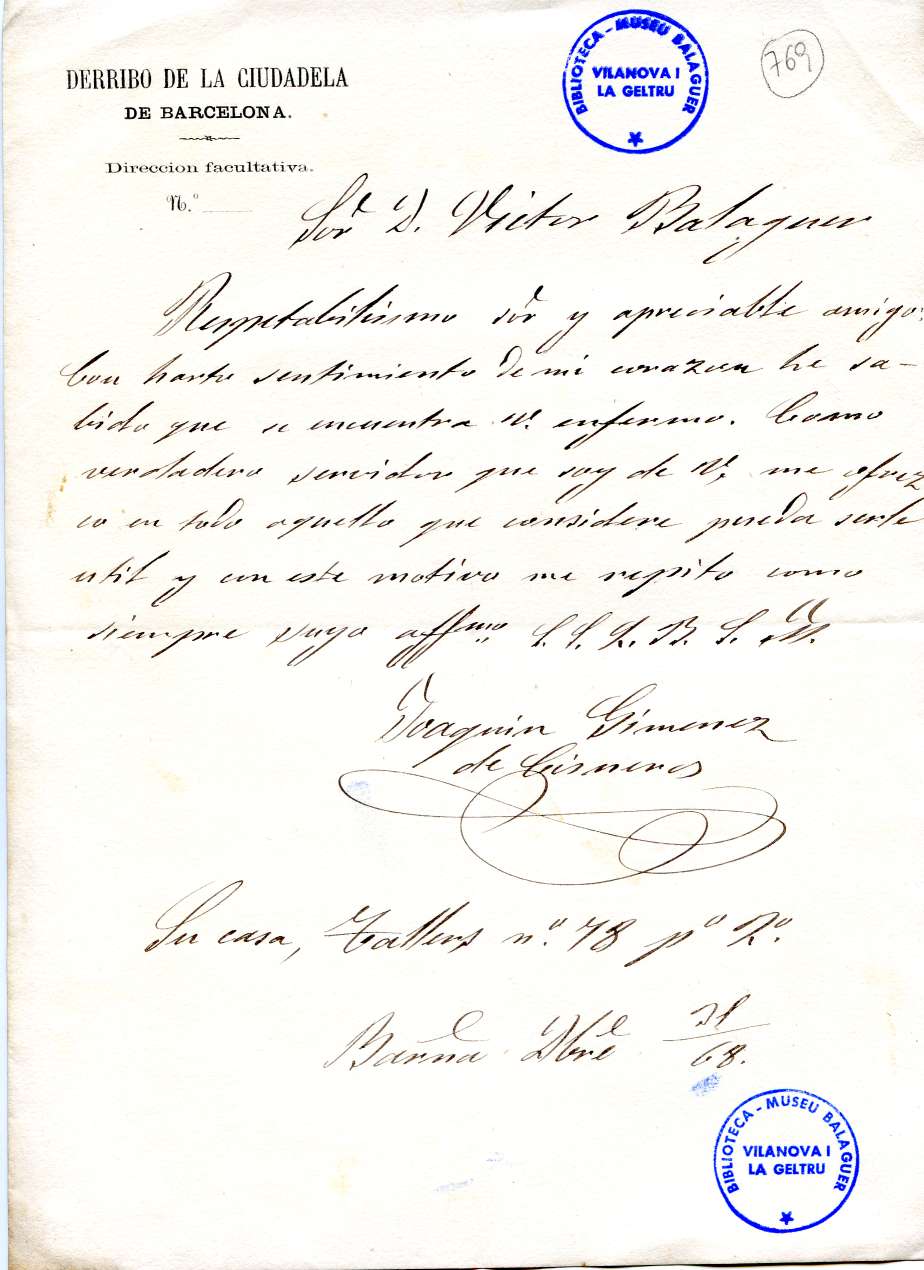 DERRIBO DE LA CIUDADELA
DE BARCELONA.
Direccion facultativa.
N.º
BIBLIOTECA - MUSEU BALAGUER
VILANOVA I
LA GELTRU
769
Sor D. Victor Balaguer
Respetabilisimo sór y apreciable amigo:
Con harto sentimiento de mi corazon he sa-
bido que se encuentra V. enfermo. Como
verdadero servidor que soy de V, me ofrez
co en todo aquello que considere pueda serle
util y con este motivo me repito como
siempre suyo affmo S. S. Q. B. S. M.
Joaquin Gimenez
de Cisneros
Su casa, Tallers nº. 78 pº 2º.
Barna Dbre 31/68.
BIBLIOTECA - MUSEU BALAGUER
VILANOVA I
LA GELTRU